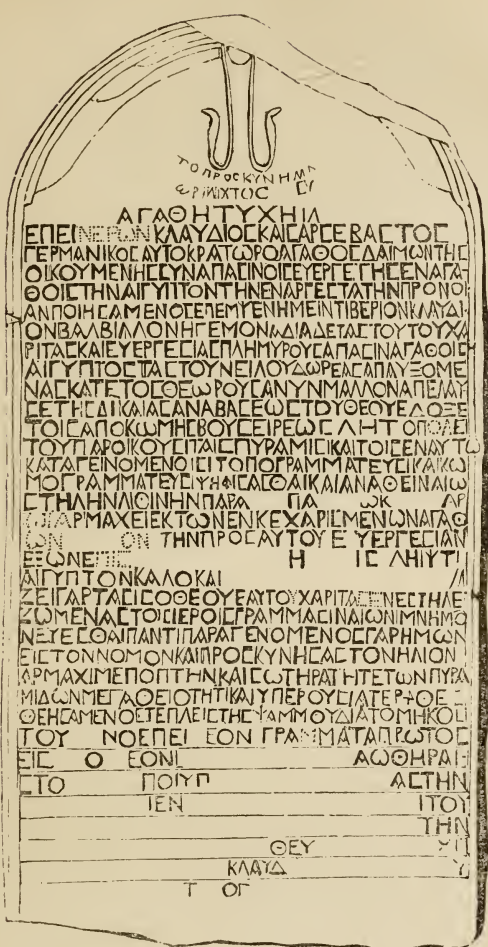 ΤΟΠΡΟΣΚΥΝΗΜΑ
ΑΓΑΘΗΤΥΧΗΙ
ΕΠΕΙΝΕΡΩΝΚΛΑΥΔΙΟϹΚΑΙϹΑΡϹΕΒΑϹΤΟϹ
ΓΕΡΜΑΝΙΚΟϹΑΥΤΟΚΡΑΤΩΡΟΑΓΑΘΟϹΔΑΙΜΩΝΤΗϹ
ΟΙΚΟΥΜΕΝΗϹϹΥΝΑΠΑϹΙΝΟΙϹΕΥΕΡΓΕΤΗϹΕΝΑΓΑ
ΘΟΙϹΤΗΝΑΙΓΥΠΤΟΝΤΗΝΕΝΑΡΓΕϹΤΑΤΗΝΠΡΟΝΟΙ
ΑΝΠΟΙΗϹΑΜΕΝΟϹΕΠΕΜΨΕΝΗΜΕΙΝΤΙΒΕΡΙΟΝΚΛΑΥΔΙ
ΟΝΒΑΛΒΙΛΛΟΝΗΓΕΜΟΝΑΔΙΑΔΕΤΑϹΤΟΥΤΟΥΧΑ
ΡΙΤΑϹΚΑΙΕΥΕΡΓΕϹΙΑϹΠΛΗΜΥΡΟΥϹΑΠΑϹΙΝΑΓΑΘΟΙϹ
ΑΙΓΥΠΤΟϹΤΑϹΤΟΥΝΕΙΛΟΥΔΩΡΕΑϹΑΠΑΥΞΟΜΕ
ΝΑϹΚΑΤΕΤΟϹΘΕΩΡΟΥϹΑΝΥΝΜΑΛΛΟΝΑΠΕΛΑΥ
ϹΕΤΗϹΔΙΚΑΙΑϹΑΝΑΒΑϹΕΩϹΤΟΥΘΕΟΥΕΔΟΞΕ
ΤΟΙϹΑΠΟΚΩΜΗϹΒΟΥϹΕΙΡΕΩϹ ΛΗΤΟΠΟΛΕΙ
ΤΟΥΠΑΡΟΙΚΟΥϹΙΤΑΙϹΠΥΡΑΜΙϹΙΚΑΙΤΟΙϹΕΝΑΥΤΩ
ΚΑΤΑΓΕΙΝΟΜΕΝΟΙϹΙΤΟΠΟΓΡΑΜΜΑΤΕΥϹΙΚΑΙΚΩ
ΜΟΓΡΑΜΜΑΤΕΥϹΙΨΗΦΙϹΑϹΘΑΙΚΑΙΑΝΑΘΕΙΝΑΙΩ
ϹΤΗΛΗΝΛΙΘΙΝΗΝΠΑΡΑ ΩΚ ΑΡ
ΑΡΜΑΧΕΙΕΚΤΩΝΕΝΚΕΧΑΡΙϹΜΕΝΩΝΑΓΑΘ
ΩΝ ΟΝ ΤΗΝΠΡΟϹΑΥΤΟΥΕΥΕΡΓΕϹΙΑΝ
ΕΞΩΝΕΠΙϹ Η
ΑΙΓΥΠΤΟΝΚΑΛΟΚΑΙ
ΖΕΙΓΑΡΤΑϹΙϹΟΘΕΟΥΕΑΥΤΟΥΧΑΡΙΤΑϹΕΝΕϹΤΗΛΕ
ΖΩΜΕΝΑϹΤΟΙϹΙΕΡΟΙϹΓΡΑΜΜΑϹΙΝΑΙΩΝΙΜΝΗΜΟ
ΝΕΥΕϹΘΑΙΠΑΝΤΙΠΑΡΑΓΕΝΟΜΕΝΟϹΓΑΡΗΜΩΝ
ΕΙϹΤΟΝΝΟΜΟΝΚΑΙΠΡΟϹΚΥΝΗϹΑϹΤΟΝΗΛΙΟΝ
ΑΡΜΑΧΙΝΕΠΟΠΤΗΝΚΑΙϹΩΤΗΡΑΤΗΤΕΤΩΝΠΥΡΑ
ΜΙΔΩΝΜΕΓΑΘΕΙΟΤΗΤΙΚΑΙΥΠΕΡΟΥϹΙΑΤΕΡΦΘΕΙ
ΘΕΗϹΑΜΕΝΟϹΤΕΠΛΕΙϹΤΗϹΨΑΜΜΟΥΔΙΑΤΟΜΗΚΟϹ
ΤΟΥ ΝΟΕΠΕΙ ΕΟΝ ΓΡΑΜΜΑΤΑΠΡΩΤΟϹ
ΕΙϹ Ο ΕΟΝΙ ΑΩΘΗΡΑΙ
ϹΤΟ ΠΟΙΥΠ ΑϹΤΗΝ
ΙΕΝ ΙΤΟΥ
ΤΗΝ
ΘΕΥ
ΚΛΑΥΔ
Τ ΟΓ